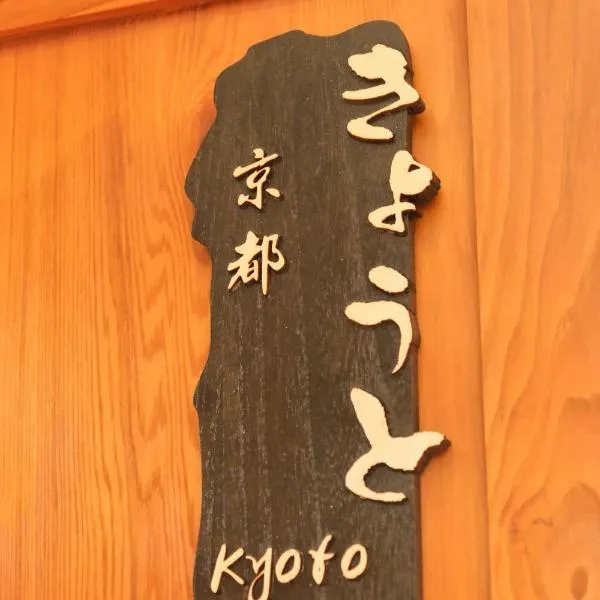 きょうと
京都
Kyoto